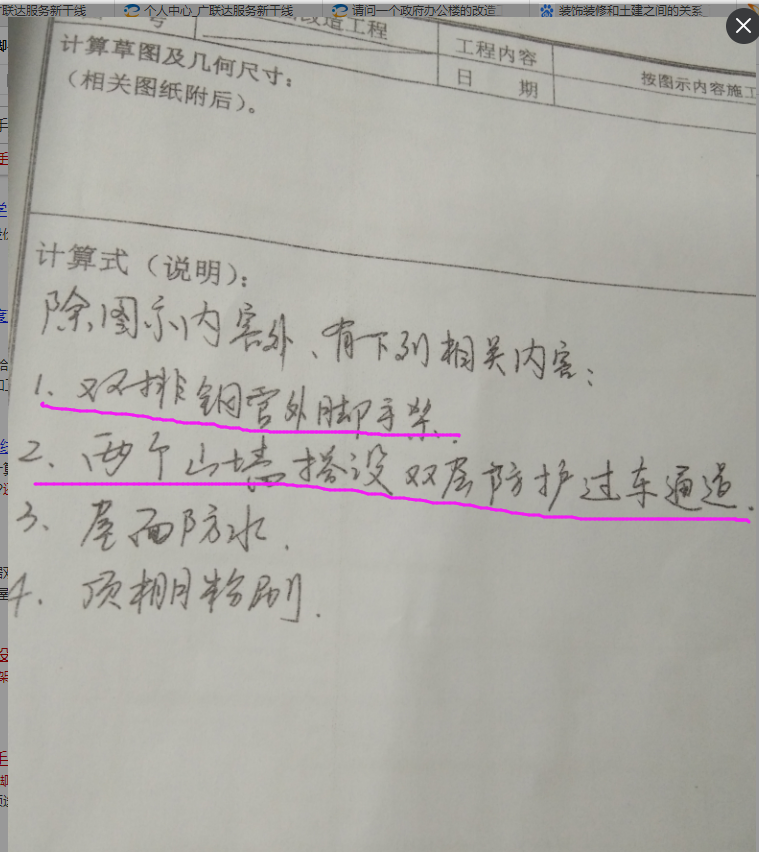 广联达服务新干线
个人中心_广联达服务新干线
请问一个政府办公楼的改造
装饰装修和土建之间的关系_
号
改造工程
工程内容
按图示内容施工
日 期
计算草图及几何尺寸：
（相关图纸附后）。
计算式（说明）：
除图示内容外、有下列相关内容：
1、双排钢管外脚手架.
2、两个山墙搭设双层防护过车通道.
3、屋面防水.
4、顶棚粉刷.